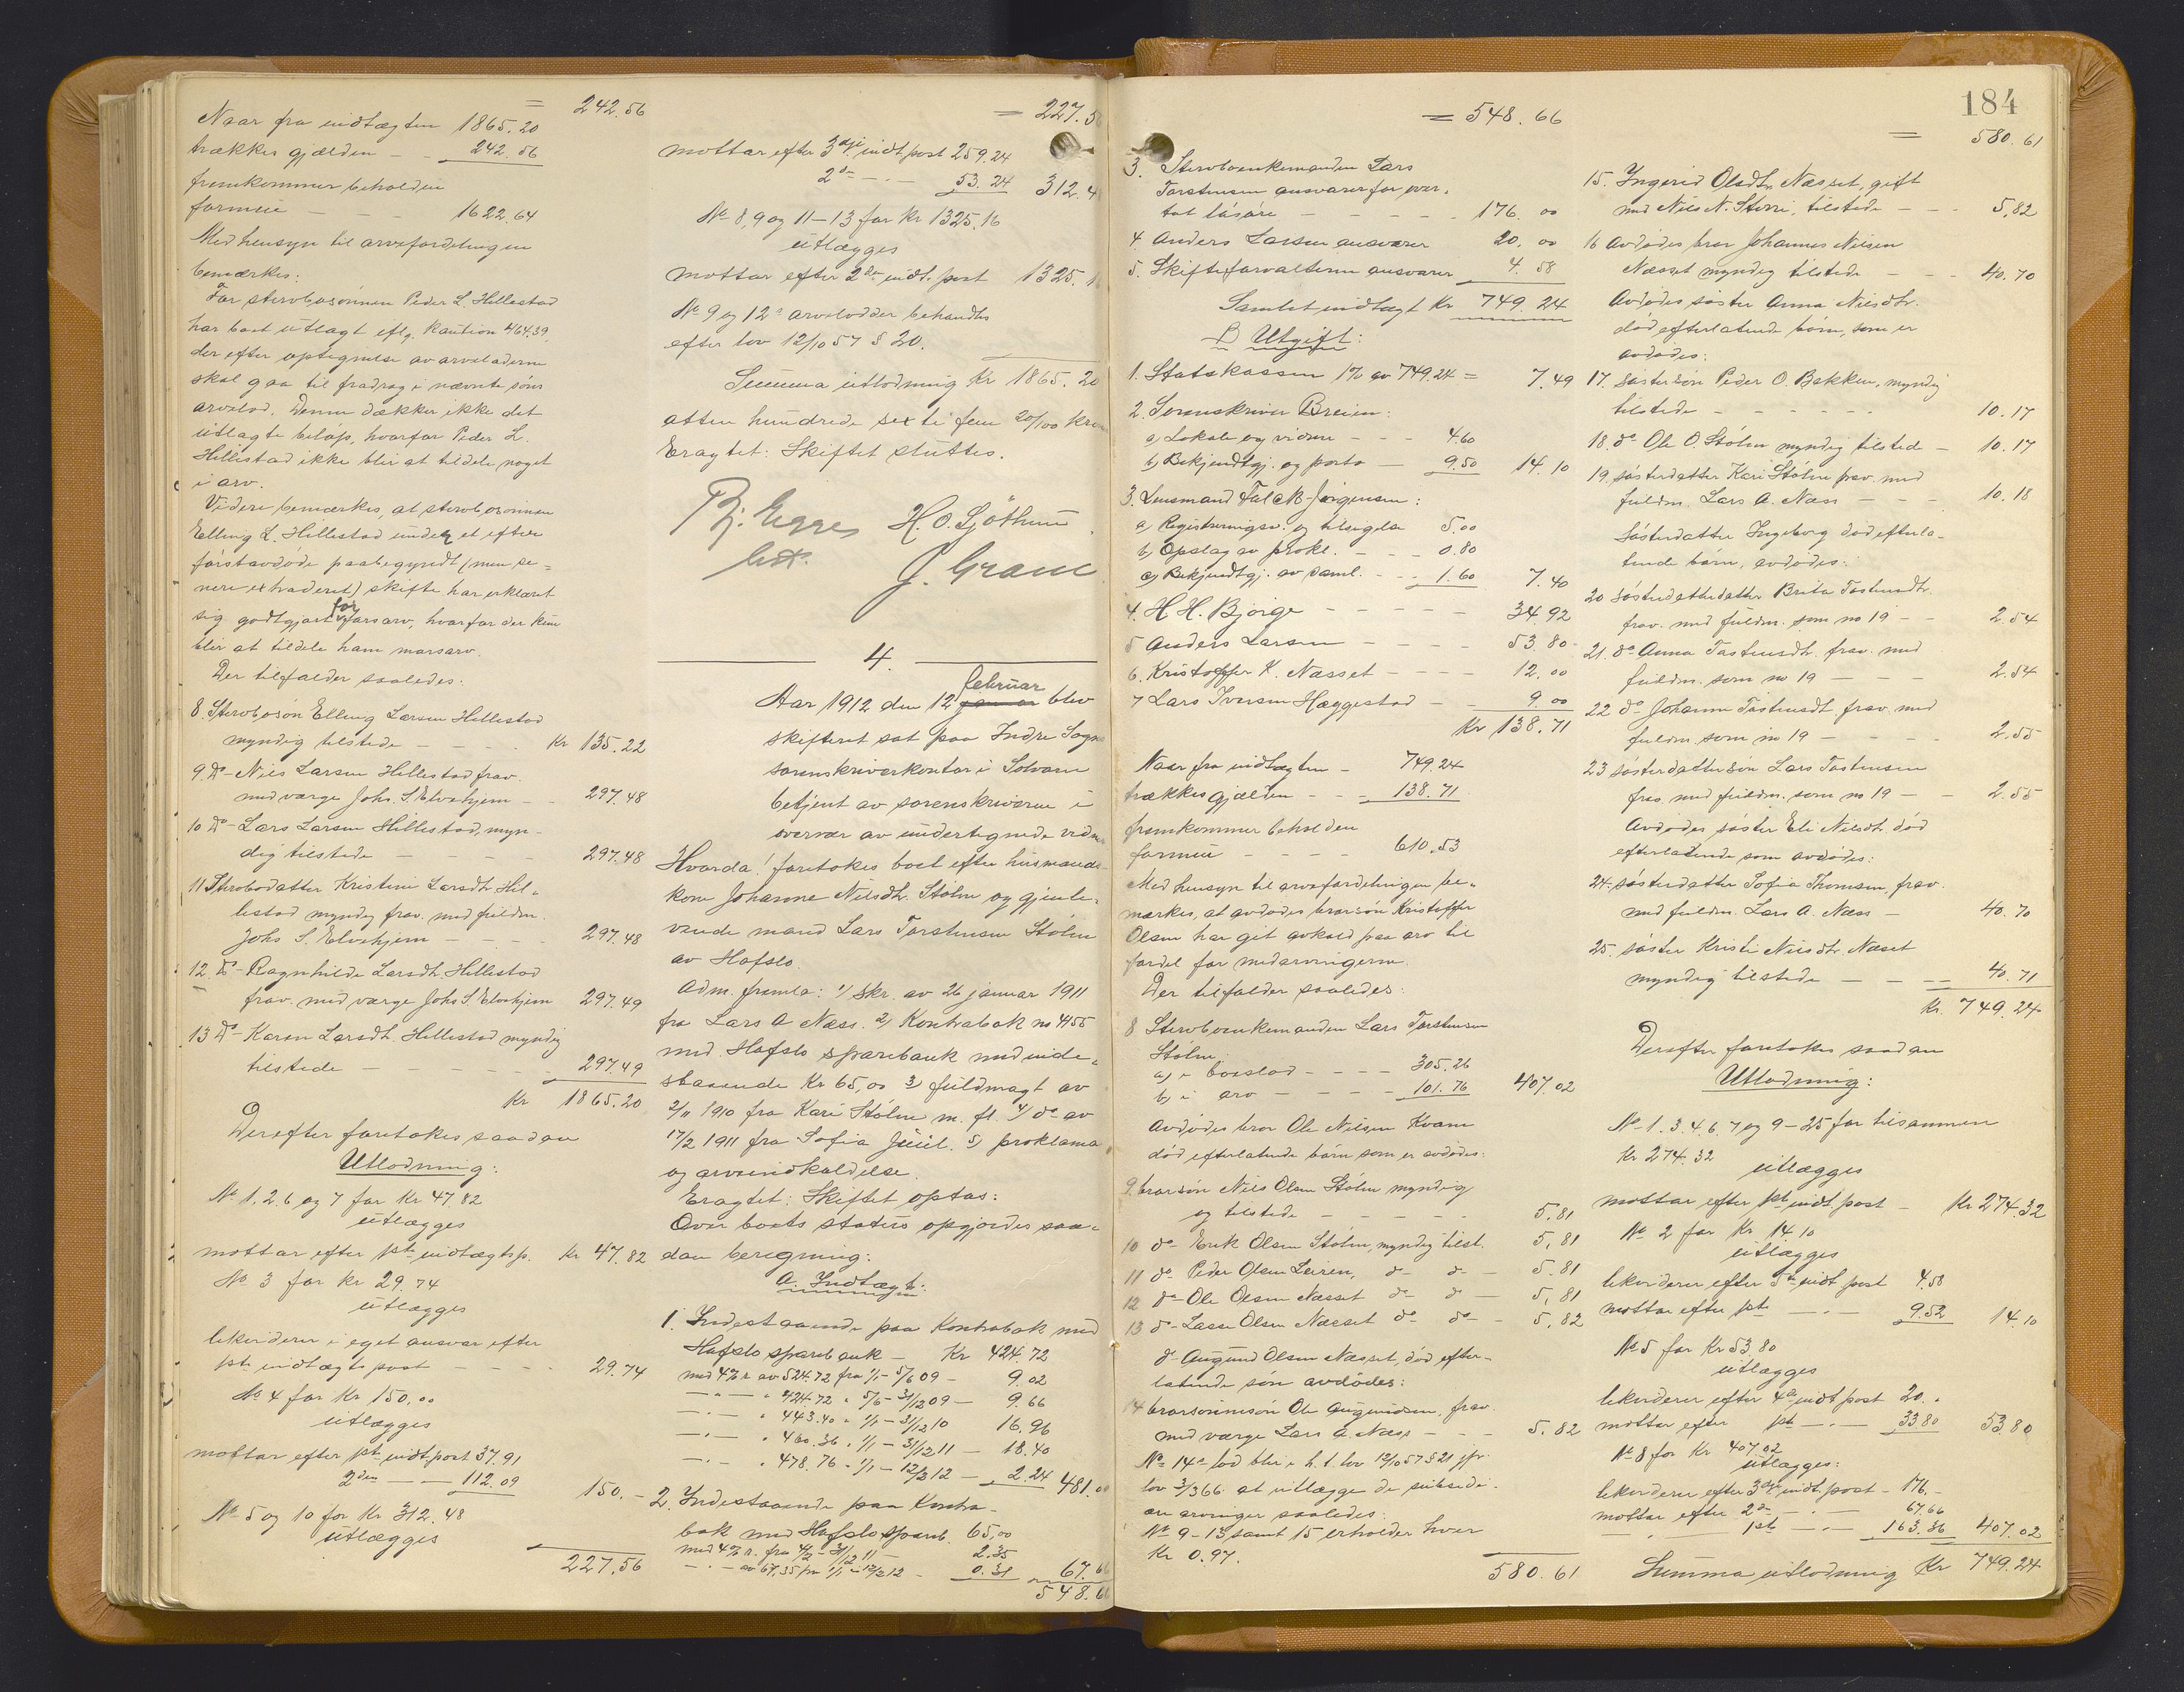 = 242.56
Naar fra indtægten 1865.20
trækkes gjælden - - 242.56
fremkommer beholden
formue - - - 1622.64
Med hensyn til arvefordelingen
bemærkes:
For stervbosönnen Peder L. Hillestad
har boet utlagt iflg. kaution 464.39,
der efter optegnelse av arveladeren
skal gaa til fradrag i nævnte söns
arvelod. Denne dækker ikke det
utlagte belöp, hvorfor Peder L.
Hillestad ikke blir at tildele noget
i arv.
Videre bemærkes, at stervbosönnen
Elling L. Hillestad under et efter
förstavdöde paabegyndt (men se=
nere extraderet) skifte har erklæret
sig godtgjort for farsarv, hvorfor der kun
blir at tildele ham morsarv.
Der tilfalder saaledes:
8. Stervbosön Elling Larsen Hillestad
myndig tilstede - - - - Kr 135.22
9. Do - Nils Larsen Hillestad frav.
med værge Johs. S. Elvehjem - - 297.48
10 Do - Lars Larsen Hillestad, myn-
dig tilstede - - - - 297.48
11 Stervbodatter Kristine Larsdtr. Hil-
lestad myndig frav. med fuldm.
Johs S. Elvehjem - - - - 297.48
12 Do - Ragnhilde Larsdtr. Hillestad
frav. med værge Johs S. Elvehjem 297.49
13 Do - Karen Larsdtr. Hillestad myndig
tilstede - - - - - 297.49
Kr 1865.20
Derefter foretokes saadan
Utlodning:
No 1, 2. 6 og 7 for Kr 47.82
utlægges
mottar efter 1ste indtægtsp. Kr 47.82
No 3 for kr 29.74
utlægges
likviderer i eget ansvar efter
1ste indtægts post - - - - 29.74
No 4 for Kr 150,00
utlægges
mottar efter 1ste indt. post 37.91
2den - - 112.09 150.-
No 5 og 10 for Kr 312.48
utlægges
227.56
= 227.5
mottar efter 3dje indt. post 259.24
2den - - 53.24 312.4
No 8, 9 og 11-13 for Kr 1325.16
utlægges
mottar efter 2den indt. post 1325.1
No 9 og 12s arvelodder behandles
efter lov 12/10 57 § 20.
Summa utlodning Kr 1865.20
atten hundrede sexti fem 20/100 kro
Eragtet: Skiftet sluttes.
H. O. Sjöthun
J. Gram
4.
februar
Aar 1912 den 12 januar blev
skifteret sat paa Indre Sogn
sorenskriverkontor i Solvorn
betjent av sorenskriveren i
overvær av undertegnede vidn
Hvorda! foretokes boet efter husmands
kone Johanne Nilsdtr. Stölen og gjenle-
vende mand Lars Torstensen Stölen
av Hafslo.
Adm. fremla: 1) skr. av 26 januar 1911
fra Lars A Næss. 2) Kontrabok no 4155
med Hafslo sparebank med inde-
staaende Kr 65,00 3) fuldmagt av
2/11 1910 fra Kari Stölen m. fl. 4) do av
17/2 1911 fra Sofia Juul. 5) proklama
og arveindkaldelse.
Eragtet: Skiftet optas:
Over boets status opgjordes saa-
dan beregning:
A. Indtægt:
1. Indestaaende paa Kontrabok med
Hafslo sparebank - Kr 424.72
med 4% r. av 524.72 fra 1/1 - 5/6 09 - 9.02
- " - " 424.72 " 5/6 - 31/12 09 - 9.66
- " - " 443.40 " 1/1 - 31/12 10 16.96
- " - " 460.36 " 1/1 - 31/12 11 - 18.40
- " - " 478.76 " 1/1 - 12/2 12 - 2.24 481.00
2. Indestaaende paa Kontra-
bok med Hafslo spareb. 65,00
med 4% r. fra 4/2 - 31/12 11 - 2.35
- " - av 67,35 fra 1/1 - 12/2 12 - 0.31 67.66
548.66
184
= 548.66
3. Stervboenkemanden Lars
Torstensen ansvarer for over-
tat lösöre - - - - - 176.00
4. Anders Larsen ansvarer 20.00
5. Skifteforvalteren ansvarer 4.58
Samlet indtægt Kr 749.24
B Utgift:
1. Statskassen 1% av 749.24 = 7.49
2. Sorenskriver Breien:
a) Lokale og vidner - - - 4.60
b) Bekjendtgj. og porto - 9.50 14.10
3. Lensmand Falck-Jörgensen:
a) Registreringsv. og tilsigelse 5.00
b) Opslag av prokl. - - - 0.80
c) Bekjendtgj. av saml. - - 1.60 7.40
4. H. H. Bjørge - - - - - 34.92
5 Anders Larsen - - - - 53.80
6. Kristoffer K. Næsset - - - - 12.00
7 Lars Iversen Hæggestad - - 9.00
Kr 138.71
Naar fra indtægten - 749.24
trækkes gjælden - - - 138.71
fremkommer beholden
formue - - - - 610.53
Med hensyn til arvefordelingen be-
mærkes, at avdödes brorsön Kristoffer
Olsen har git avkald paa arv til
fordel for medarvingerne.
Der tilfalder saaledes:
8 Stervboenkemanden Lars Torstensen
Stölen
a) i boeslod - - - - 305.26
b) i arv - - - - 101.76 407.02
Avdödes bror Ole Nilsen Kvam
död efterlatende börn som er avdödes:
9. brorsön Nils Olsen Stölen myndig
og tilstede - - - - - - 5.81
10 do - Erik Olsen Stölen, myndig tilst. 5.81
11 do Peder Olsen Leiren, do - do - 5.81
12 do - Ole Olsen Næsset do - do - 5.81
13 do - Lasse Olsen Næsset do - do - 5.82
do Augund Olsen Næsset, död efter-
latende sön avdödes:
14 brorsönnesön Ole Augundsen, frav.
med værge Lars A. Næss - - - 5.82
No 14s lod blir i h. t. lov 12/10 57 § 21 jfr.
lov 3/3 66 at utlægge de subsidi-
ære arvinger saaledes:
No 9-13 samt 15 erholder hver
Kr 0.97.
580.61
= 580.61
15. Ingerid Olsdtr. Næsset, gift
med Nils N. Sterri, tilstede - - - 5,82
16 Avdödes bror Johannes Nilsen
Næsset myndig tilstede - - - 40.70
Avdödes söster Anna Nilsdtr.
död efterlatende börn, som er
avdödes:
17. Söstersön Peder O. Bakken, myndig
tilstede - - - - - - 10.17
18. do Ole O Stölen myndig tilstede - 10.17
19. sösterdatter Kari Stölen frav. med
fuldm. Lars A. Næss - - - 10.18
Sösterdatter Ingeborg död efterla-
tende börn, avdödes:
20 sösterdatterdatter Brita Tostensdtr.
frav. med fuldm. som no 19 - - 2.54
21. do - Anna Tostensdtr. frav. med
fuldm. som no 19 - - - 2.54
22 do - Johanne Tostensdtr. frav. med
fuldm. som no 19 - - - - 2.55
23 sösterdattersön Lars Tostensen
frav. med fuldm. som no 19 - - 2.55
Avdödes söster Eli Nilsdtr. död
efterlatende som avdödes:
24. sösterdatter Sofia Thomsen, frav.
med fuldm. Lars A. Næss - 40.70
25. söster Kristi Nilsdtr. Næset
myndig tilstede - - - - 40.71
Kr. 749.24
Derefter foretokes saadan
Utlodning:
No 1. 3. 4. 6. 7 og 9-25 for tilsammen
Kr 274.32
utlægges
mottar efter 1ste indt. post - Kr 274.32
No 2 for Kr 14.10
utlægges
likviderer efter 5te indt. post 4.58
mottar efter 1ste - " - 9.52 14.10
No 5 for Kr 53.80
utlægges
likviderer efter 4de indt. post 20."
mottar efter 1ste - " - 33.80 53.80
No 8 for Kr 407.02
utlægges:
likviderer efter 3dje indt. post - 176.-
mottar efter 2den - " - 67.66
- " - 1ste - " - 163.36 407.02
Summa utlodning Kr 749.24